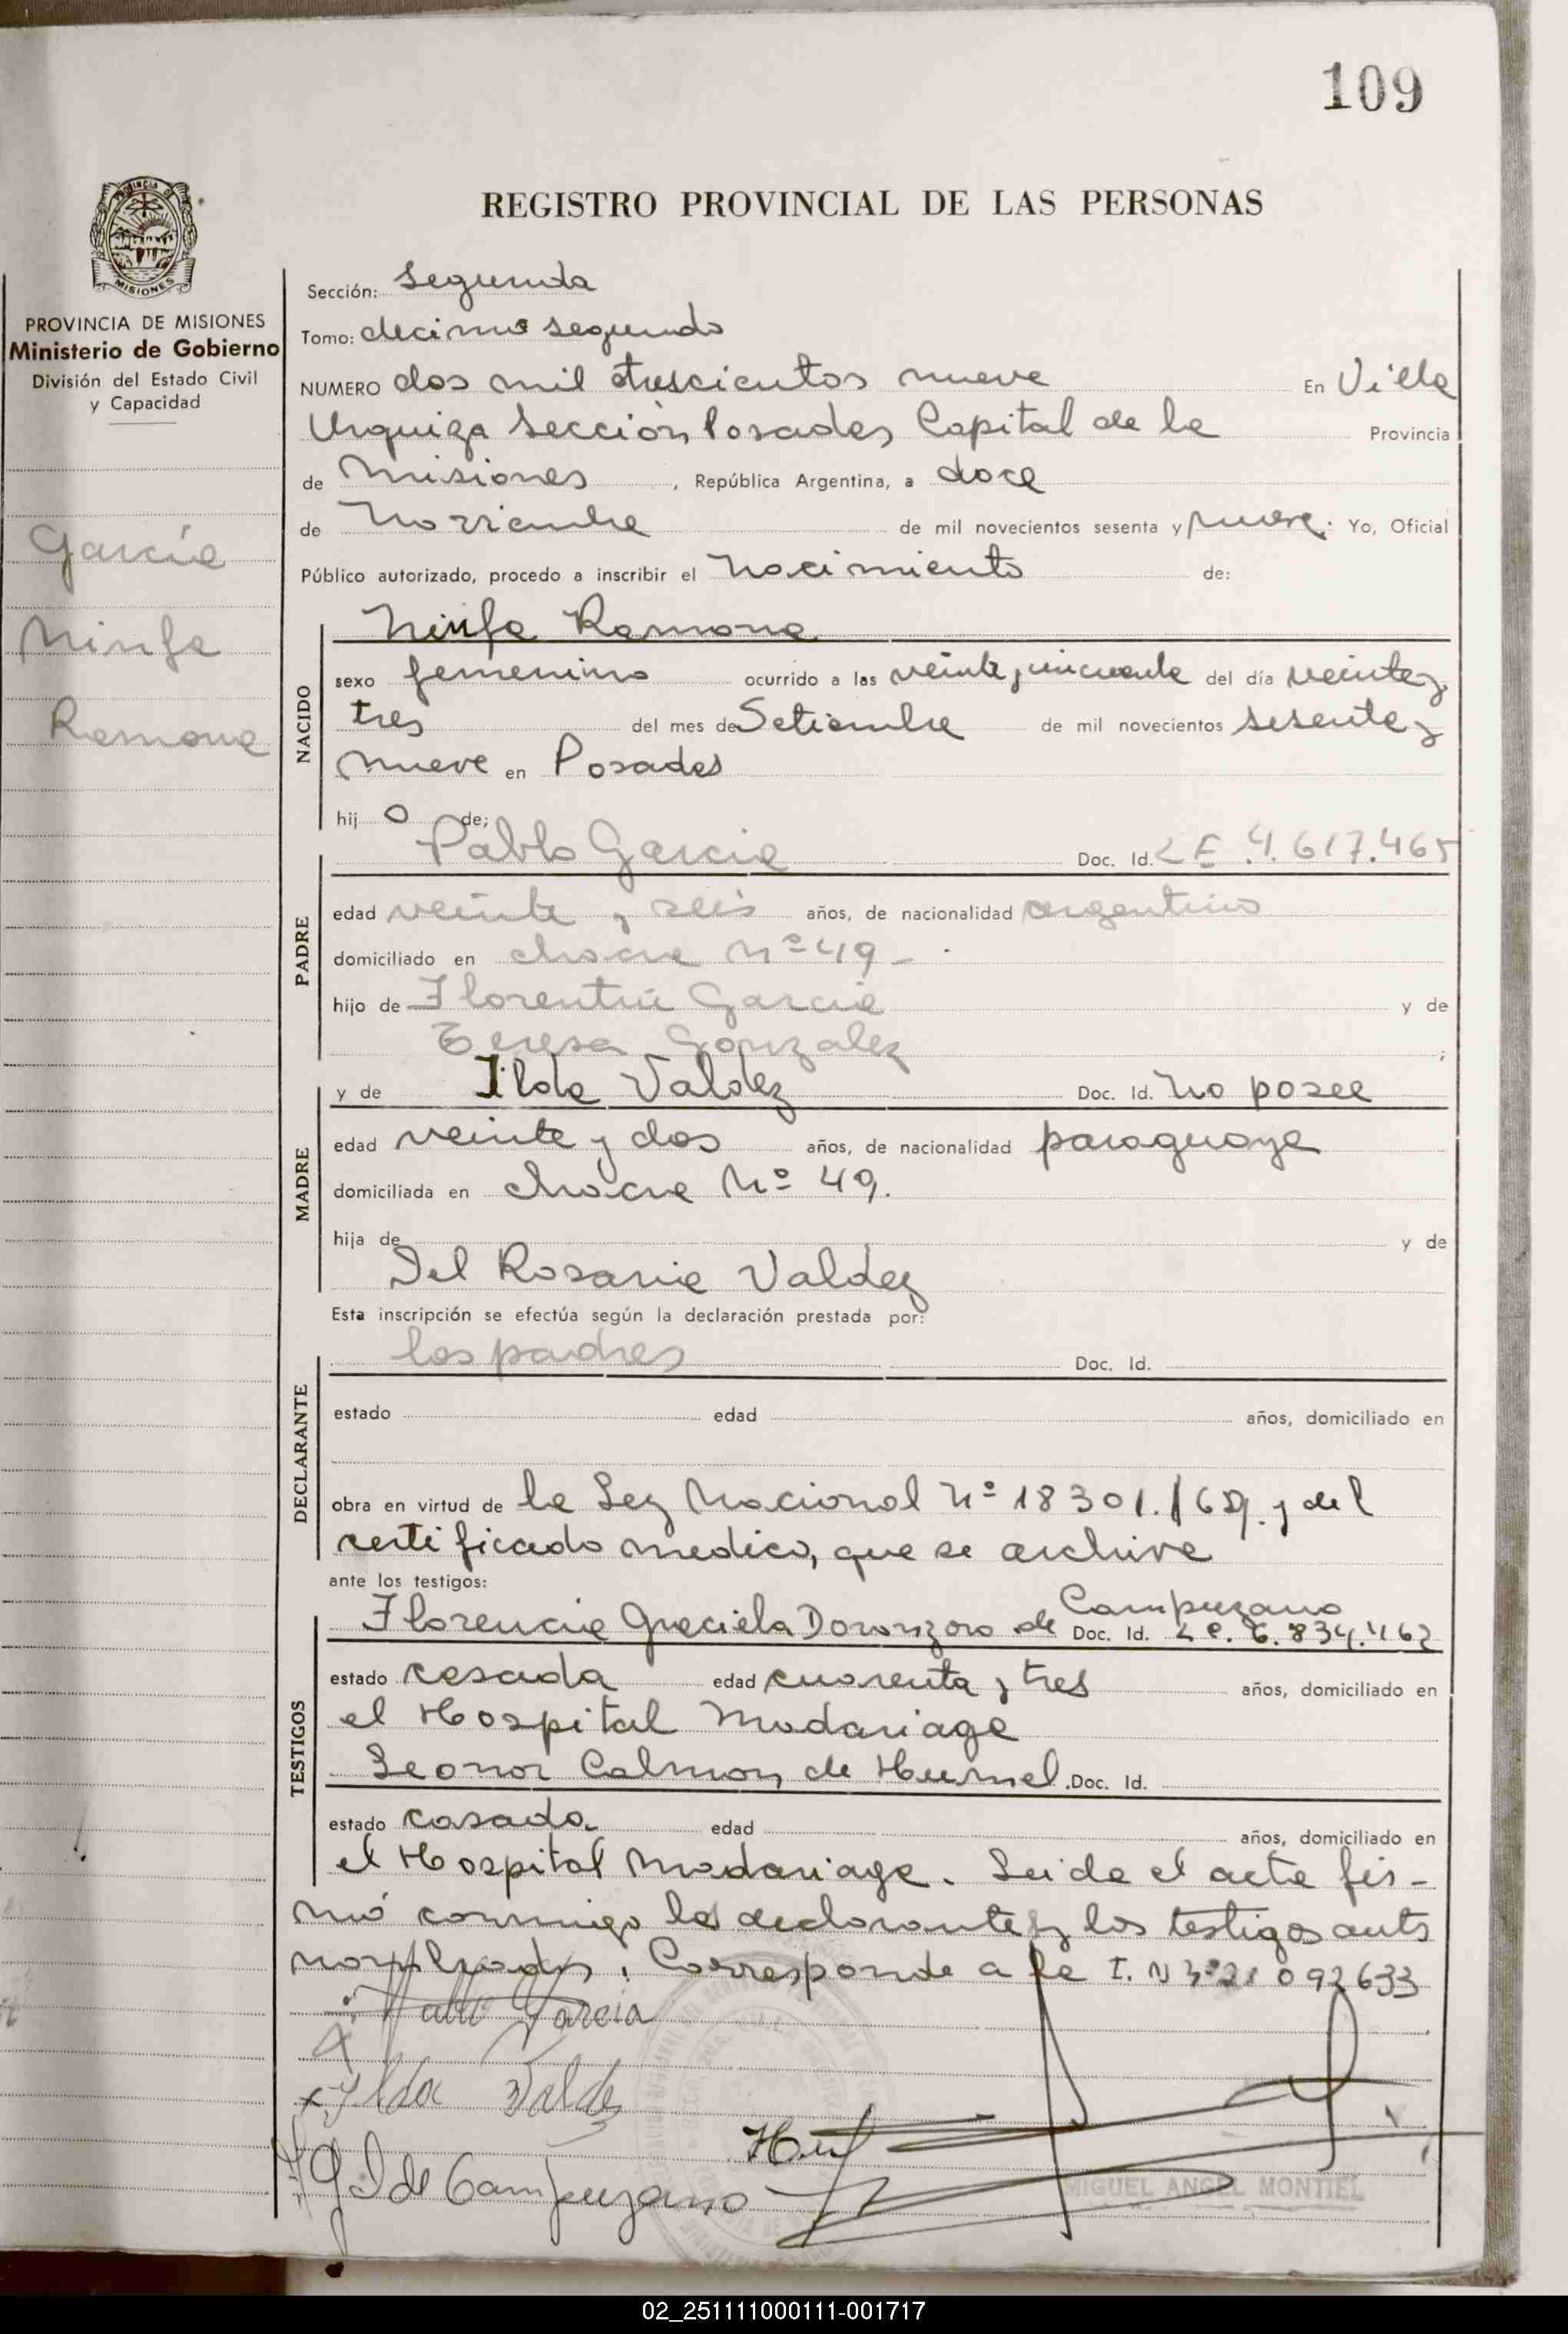 109
REGISTRO PROVINCIAL DE LAS PERSONAS
MISIONES
PROVINCIA DE MISIONES
Ministerio de Gobierno
División del Estado Civil
y Capacidad
García
Ninfa
Ramona
Sección: Segunda
Tomo: decimo segundo
NUMERO dos mil trescientos nueve En Villa
Urquiza Sección Posadas, Capital de la Provincia
de Misiones, República Argentina, a doce
de Noviembre de mil novecientos sesenta y nueve. Yo, Oficial
Público autorizado, procedo a inscribir el Nacimiento de:
NACIDO
Ninfa Ramona
sexo femenino ocurrido a las veinte y cincuenta del día veinte y
tres del mes de Setiembre de mil novecientos sesenta y
nueve en Posadas
hij o de;
PADRE
Pablo Garcia Doc. Id. LE 4.617.465
edad veinte y seis años, de nacionalidad argentino
domiciliado en chacra Nº 49 -
hijo de Florentin Garcia y de
Teresa Gonzalez ;
MADRE
y de Ilda Valdez Doc. Id. No posee
edad veinte y dos años, de nacionalidad paraguaya
domiciliada en chacra Nº 49.
hija de y de
Del Rosario Valdez
Esta inscripción se efectúa según la declaración prestada por:
DECLARANTE
los padres Doc. Id.
estado edad años, domiciliado en
obra en virtud de la Ley Nacional Nº 18301./69. y del
certificado medico, que se archiva
ante los testigos:
TESTIGOS
Florencia Graciela Doronzoro de Campuzano Doc. Id. L C. 6.834.462
estado casada edad cuarenta y tres años, domiciliado en
el Hospital Madariaga
Leonor Calmon de Humel. Doc. Id.
estado casada edad años, domiciliado en
el Hospital Madariaga. Leida el acta fir-
mó conmigo los declarantes y los testigos ants
nombrados. Corresponde a la I. Nº 21 092633
Pablo Garcia
Ylda Valdez
G D de Campuzano
MIGUEL ANGEL MONTIEL
02_251111000111-001717